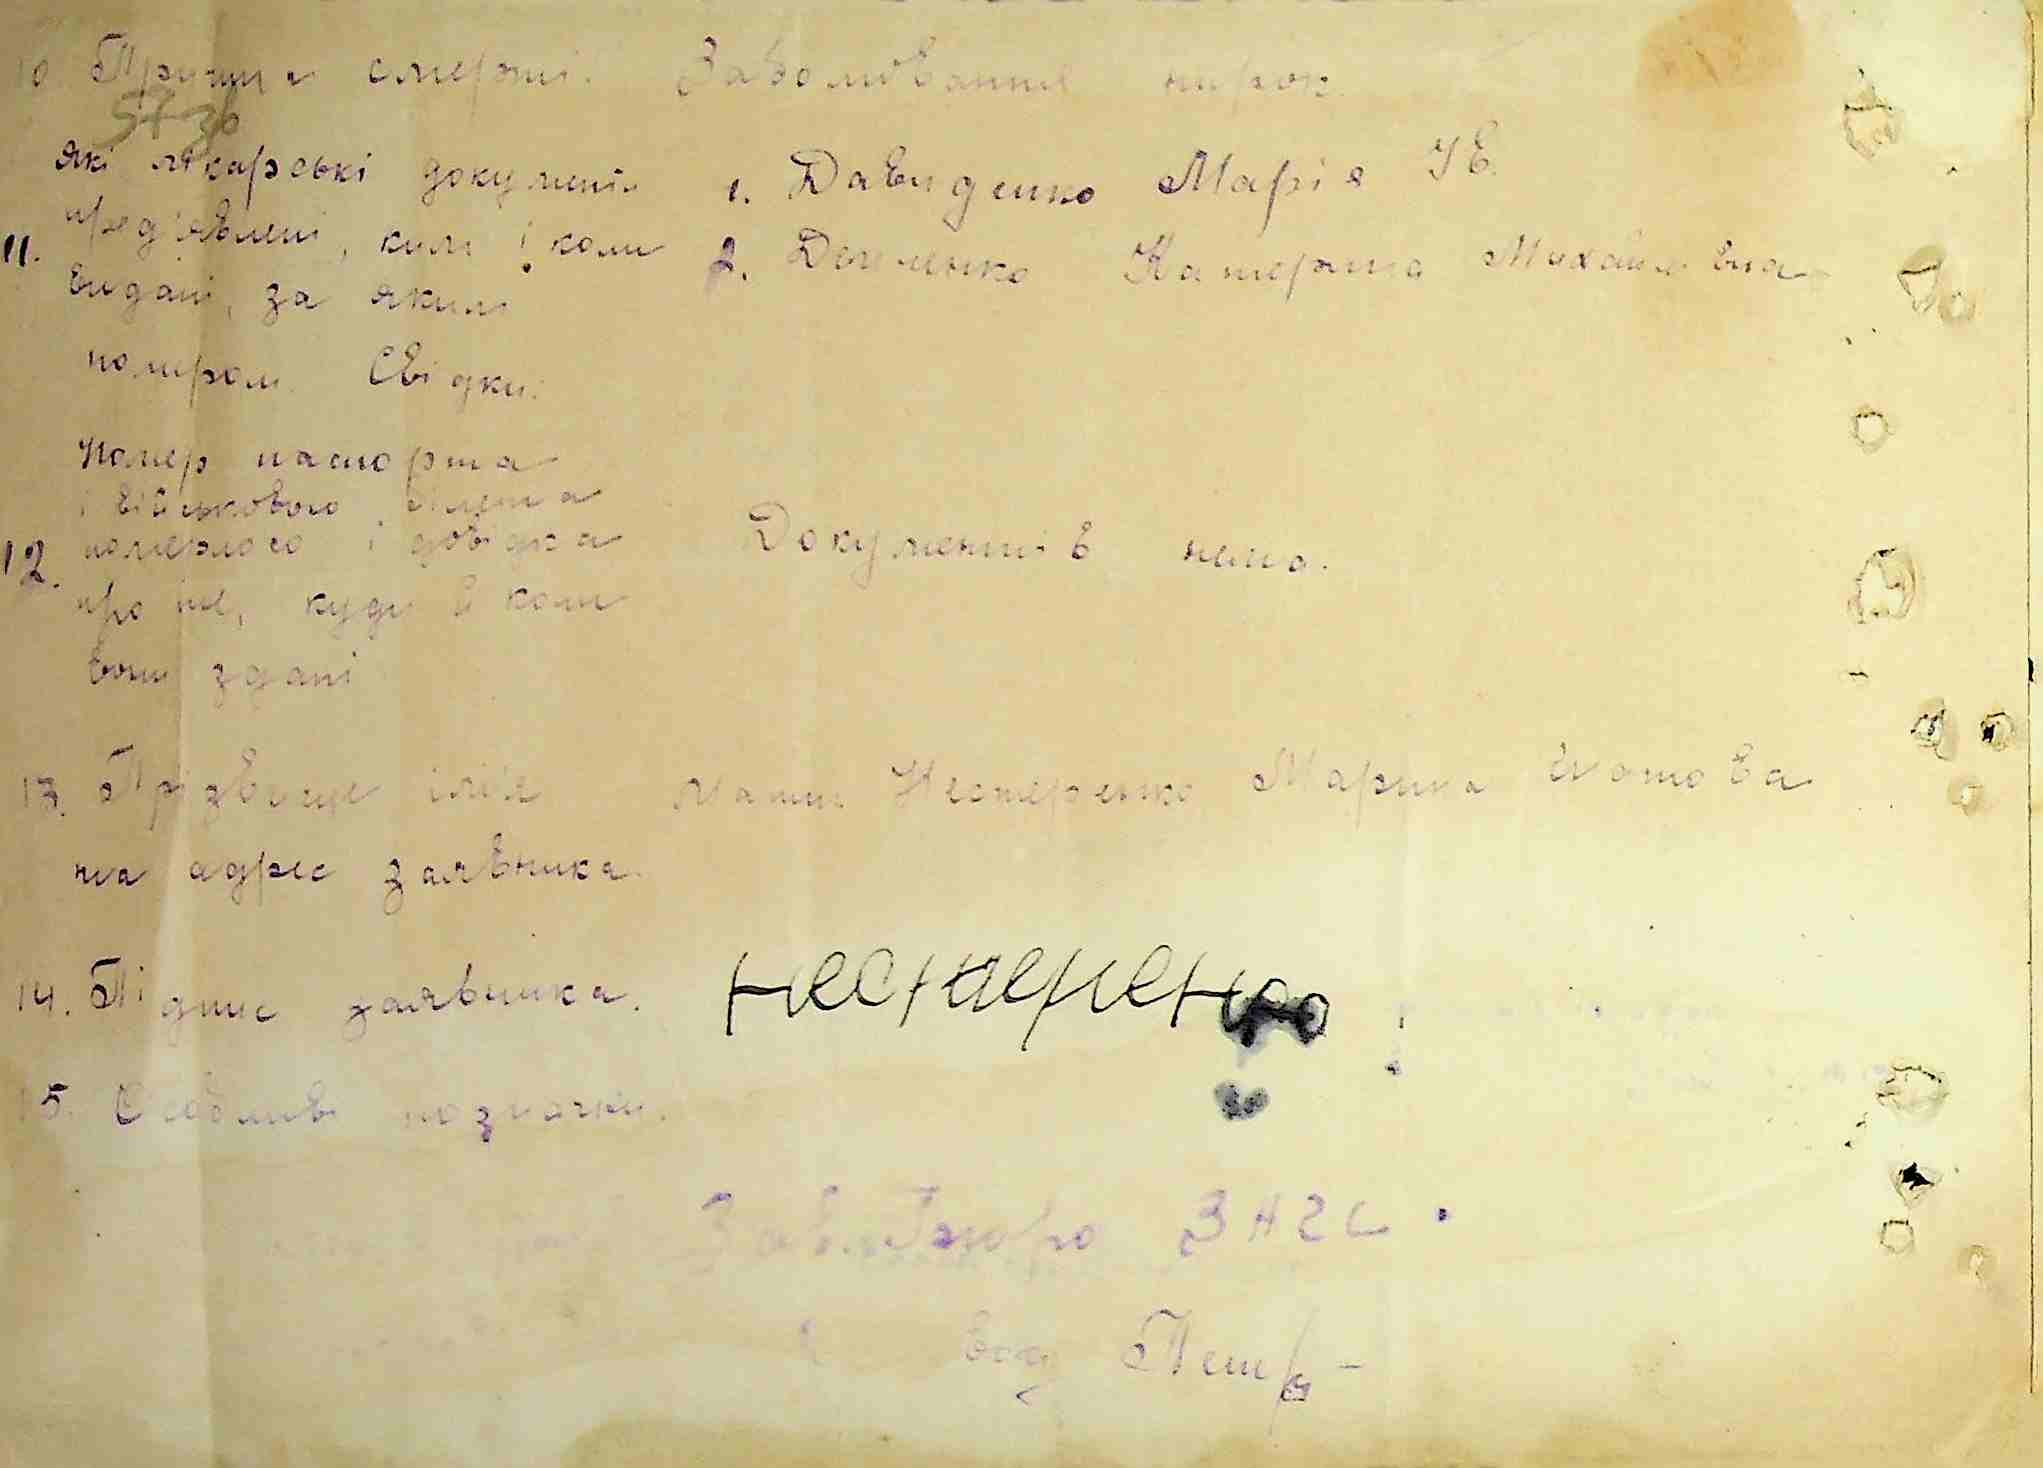 10. Причина смерті. Заболювання нирок.
57 зв
Які лікарські документи 1. Давиденко Марія
11. пред'явлені, ким і коли 2. Катерина Михайлівна
видані, за яким
номером. Свідки.
Номер паспорта
і військового білета
12. померлого і довідка Документів нема.
про те, куди й коли
вони здані
13. Прізвище ім'я Мати Нестеренко Марина
та адрес заявника.
14. Підпис заявника. Нестеренко
15. Особливі позначки.
Зав. Бюро ЗАГС.